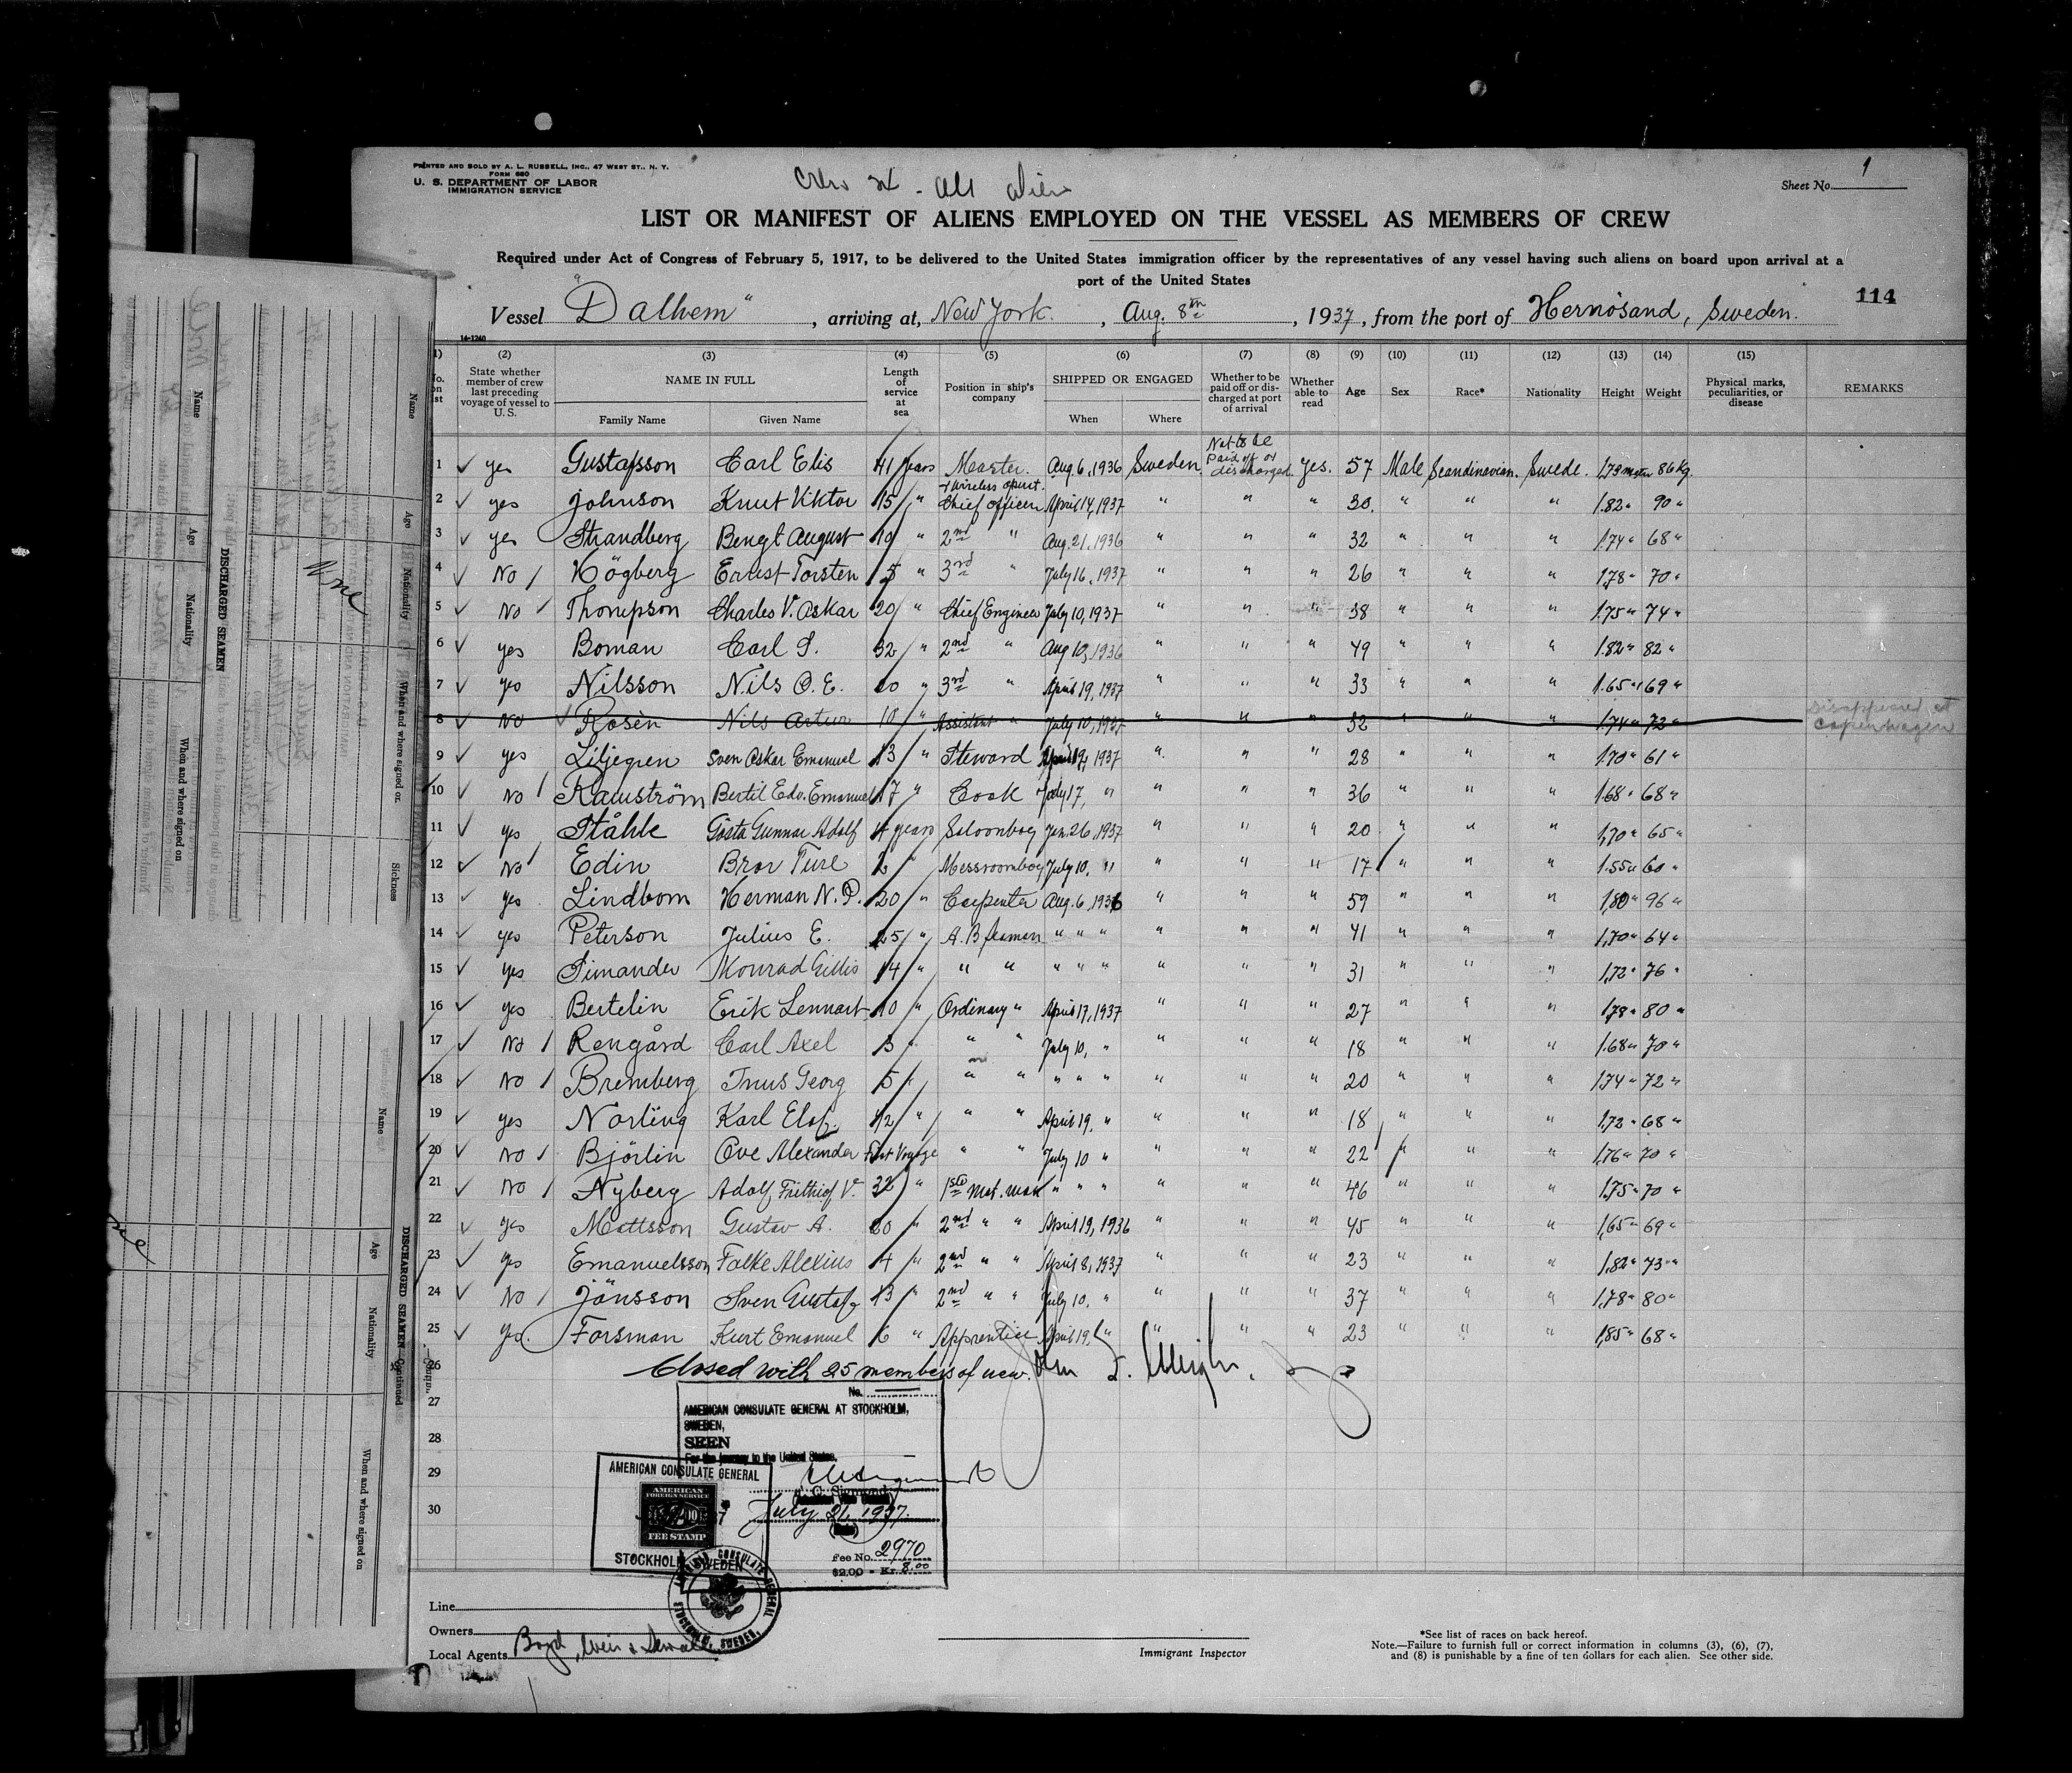 PRINTED AND SOLD BY A. L. RUSSELL, INC., 47 WEST ST., N. Y.
FORM 680
U. S. DEPARTMENT OF LABOR
IMMIGRATION SERVICE
Crew - all alien
Sheet No. 1
LIST OR MANIFEST OF ALIENS EMPLOYED ON THE VESSEL AS MEMBERS OF CREW
Required under Act of Congress of February 5, 1917, to be delivered to the United States immigration officer by the representatives of any vessel having such aliens on board upon arrival at a
port of the United States
114
Vessel "Dalhem", arriving at, New York., Aug. 8th, 1937, from the port of Hernösand, Sweden.
14-1240
(2) (3) (4) (5) (6) (7) (8) (9) (10) (11) (12) (13) (14) (15)
State whether member of crew last preceding voyage of vessel to U. S. NAME IN FULL Family Name Given Name Length of service at sea Position in ship's company SHIPPED OR ENGAGED When Where Whether to be paid off or discharged at port of arrival Whether able to read Age Sex Race* Nationality Height Weight Physical marks, peculiarities, or disease REMARKS
1 ✓ yes Gustafsson Carl Elis 41 years Master. Aug. 6, 1936 Sweden. Not to be paid off or discharged yes. 57 Male Scandinavian. Swede. 1.73 meter 86 kg.
2 ✓ yes Johnson Knut Viktor 15 " + Wireless operat. Chief officer April 14, 1937 " " " 30. " " " 1.82 " 90 "
3 ✓ yes Strandberg Bengt August 10 " 2nd " Aug. 21, 1936 " " " 32 " " " 1.74 " 68 "
4 ✓ No Högberg Ernst Torsten 5 " 3rd " July 16, 1937 " " " 26 " " " 1.78 " 70 "
5 ✓ No Thompson Charles V. Oskar 20 " Chief Engineer July 10, 1937 " " " 38 " " " 1.75 " 74 "
6 ✓ yes Boman Carl S. 32 " 2nd " Aug 10, 1936 " " " 49 " " " 1.82 " 82 "
7 ✓ yes Nilsson Nils O. E. 10 " 3rd " April 19, 1937 " " " 33 " " " 1.65 " 69 "
8 ✓ No Rosèn Nils Artur 10 " Assistent " July 10, 1937 " " " 32 " " " 1.74 " 72 " Disappeared at Copenhagen
9 ✓ yes Liljegren Sven Oskar Emanuel 13 " Steward April 19, 1937 " " " 28 " " " 1.70 " 61 "
10 ✓ No Ramström Bertil Edv. Emanuel 17 " Cook July 17, " " " " 36 " " " 1.68 " 68 "
11 ✓ yes Ståhle Gösta Gunnar Adolf 4 years Saloonboy Jan. 26, 1937 " " " 20 " " " 1.70 " 65 "
12 ✓ No Edin Bror Ture 2 " Messroomboy July 10, " " " " 17 " " " 1.55 " 60 "
13 ✓ yes Lindbom Herman N. P. 20 " Carpenter Aug. 6, 1936 " " " 59 " " " 1.80 " 96 "
14 ✓ yes Peterson Julius E. 25 " A. B seaman " " " " " " 41 " " " 1.70 " 64 "
15 ✓ yes Simander Konrad Gillis 14 " " " " " " " " " 31 " " " 1.72 " 76 "
16 ✓ yes Bertelin Erik Lennart 10 " Ordinary " April 17, 1937 " " " 27 " " " 1.78 " 80 "
17 ✓ No Rengård Carl Axel 3 " " " July 10, " " " " 18 " " " 1.68 " 70 "
18 ✓ No Bremberg Inus Georg 5 " " " " " " " " " 20 " " " 1.74 " 72 "
19 ✓ yes Norling Karl Elof 1/2 " " " April 19, " " " " 18 " " " 1.72 " 68 "
20 ✓ No Björlin Ove Alexander First Voyage " " July 10 " " " " 22 " " " 1.76 " 70 "
21 ✓ No Nyberg Adolf Frithiof V. 32 " 1st Mot. man " " " " " " 46 " " " 1.75 " 70 "
22 ✓ yes Mattsson Gustav A. 20 " 2nd " " April 19, 1936 " " " 45 " " " 1.65 " 69 "
23 ✓ yes Emanuelsson Falke Alexius 4 " 2nd " " April 8, 1937 " " " 23 " " " 1.82 " 73 "
24 ✓ No Jönsson Sven Gustaf 13 " 2nd " " July 10. " " " " 37 " " " 1.78 " 80 "
25 ✓ yes. Forsman Kurt Emanuel 6 " Apprentice April 19, " " " " 23 " " " 1.85 " 68 "
26 Closed with 25 members of
27
28
29
30
No.
AMERICAN CONSULATE GENERAL AT STOCKHOLM,
SWEDEN,
SEEN
For the journey to the United States.
C. Sigmond
July 21, 1937.
(Date)
Fee No. 2970
$2.00 = Kr. 8.00
AMERICAN CONSULATE GENERAL
AMERICAN
FOREIGN SERVICE
FEE STAMP
STOCKHOLM, SWEDEN
Line
Owners
Local Agents Boyd, Weir & Sewall
Immigrant Inspector
*See list of races on back hereof.
Note.—Failure to furnish full or correct information in columns (3), (6), (7),
and (8) is punishable by a fine of ten dollars for each alien. See other side.
DISCHARGED SEAMEN
Name Age Nationality When and where signed on
Name Age Nationality When and where signed on. Sickness
DISCHARGED SEAMEN—Continued
Name Age Nationality When and where signed on